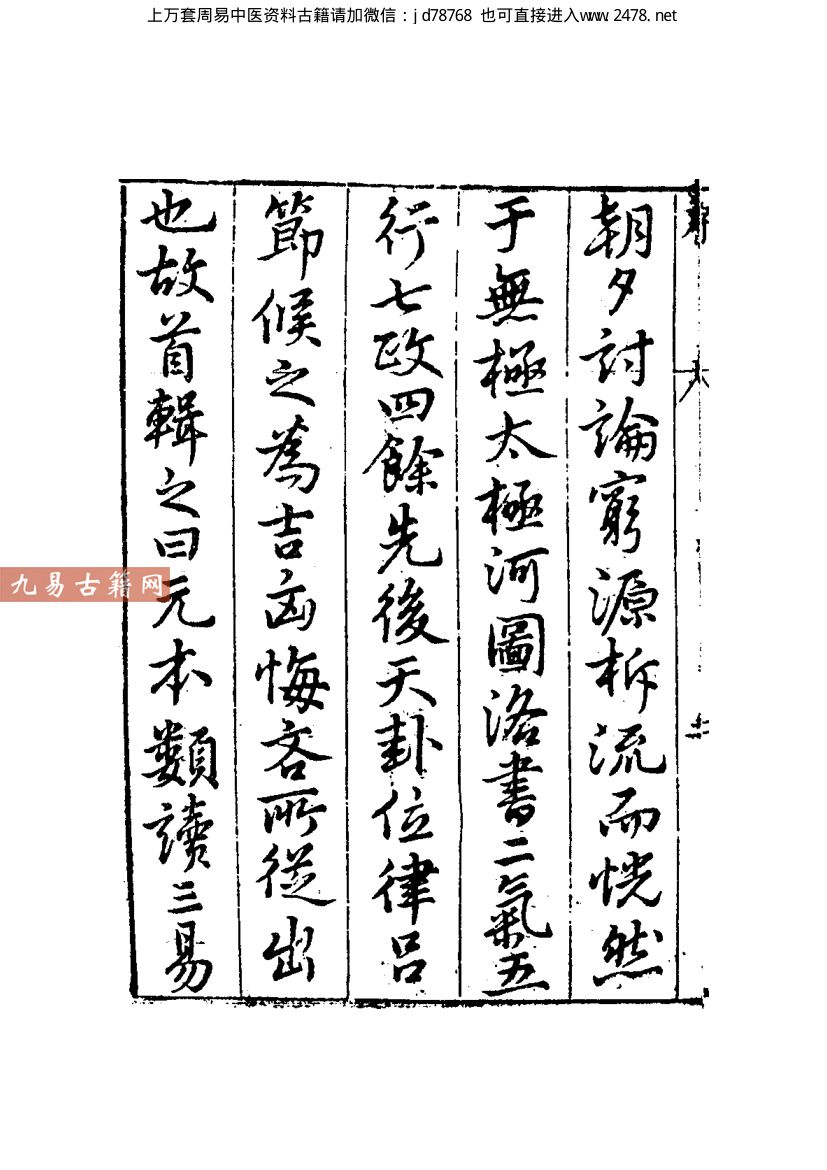 上万套周易中医资料古籍请加微信：jd78768 也可直接进入www.2478.net
朝夕討論窮源析流而恍然
于無極太極河圖洛書二氣五
行七政四餘先後天卦位律呂
節候之為吉凶悔吝所從出
也故首輯之曰元本類讀三易
九易古籍网